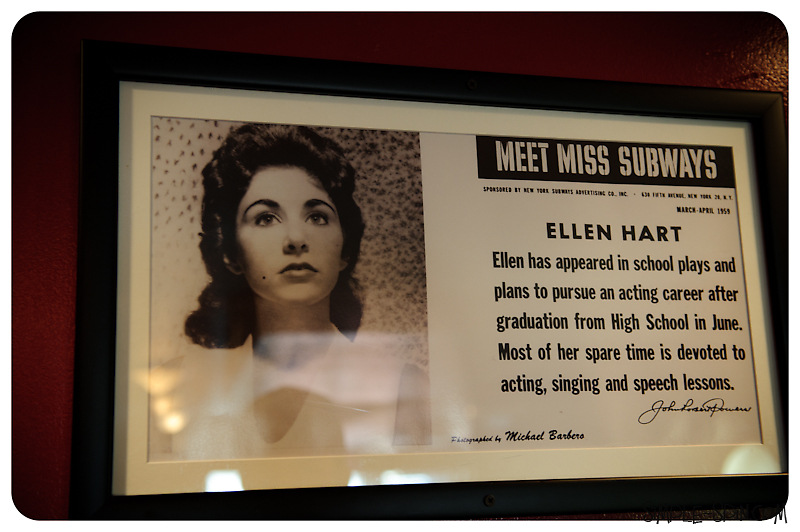 MEET MISS SUBWAYS
SPONSORED BY NEW YORK SUBWAYS ADVERTISING CO., INC. - 630 FIFTH AVENUE, NEW YORK 20, N.Y.
MARCH-APRIL 1959
ELLEN HART
Ellen has appeared in school plays and
plans to pursue an acting career after
graduation from High School in June.
Most of her spare time is devoted to
acting, singing and speech lessons.
John Robert Powers
Photographed by Michael Barbero